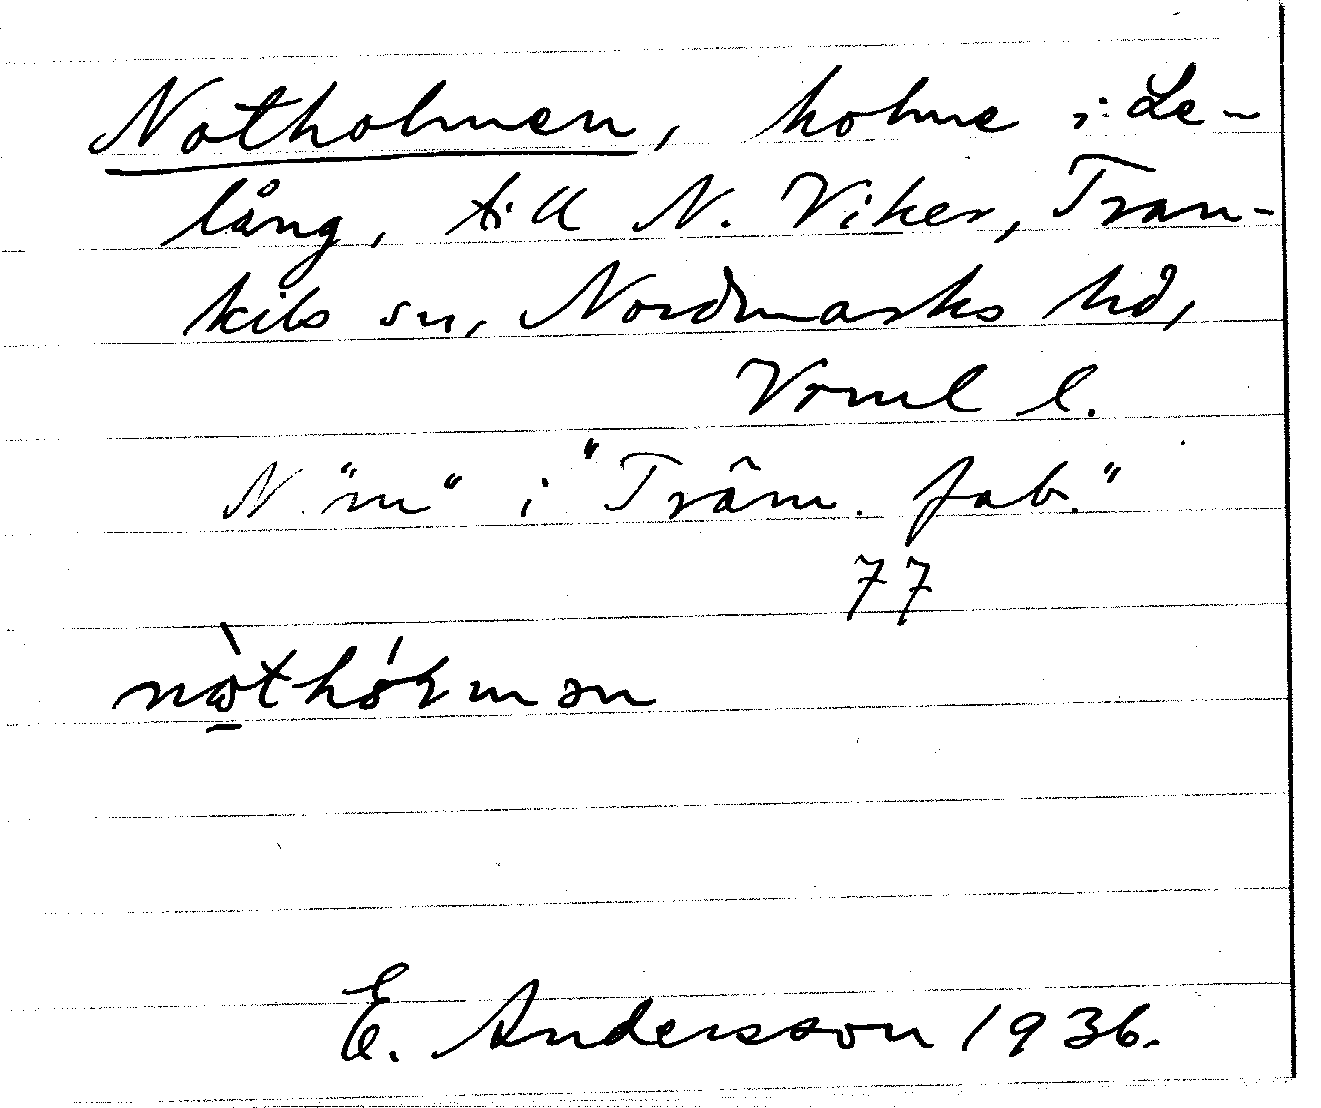 Notholmen, holme i Le-
lång, till N. Viker, Tran-
kils sn, Nordmarks hd,
Vrml l.
N. "m" i "Träm. fab."
77
nɷ̀thóɫmən
E. Andersson 1936.